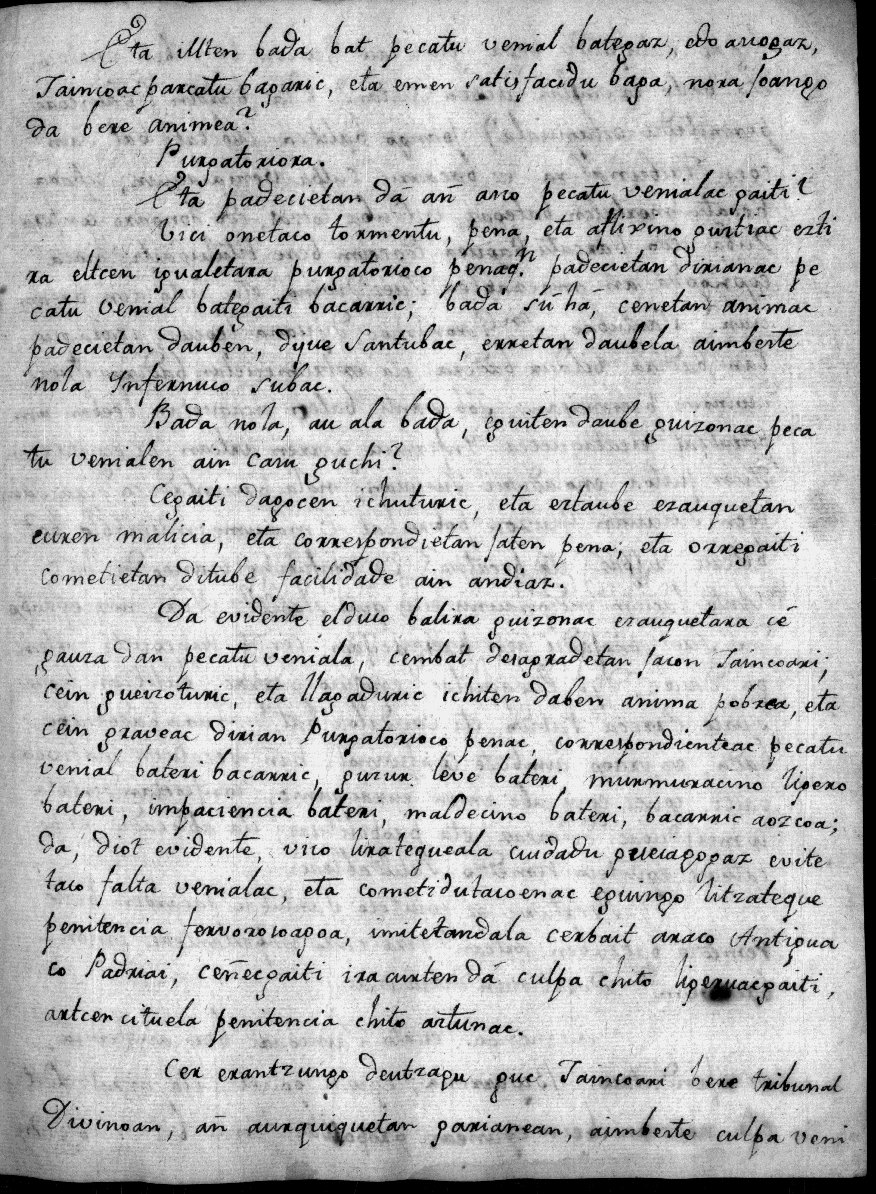 Eta illten bada bat pecatu venial bategaz, edo asvogaz,
Taincoac parcatu bagaric, eta emen satisfacidu baga, nora joango
da bere animea?
Purgatoriora.
Eta padecietan dā an̄ asco pecatu venialac gaiti?
Vici onetaco tormentu, pena, eta guztiac ezti
ra eltcen igualetara purgatorioco penaq.n padecietan dirianac pe
catu venial bategaiti bacarric; bada sūhā, cenetan animac
padecietan dauben, dque Santubac, erretan daubela aimberte
nola Ynfernuco subac.
Bada nola, au ala bada, eguiten daube guizonac peca
tu venialen ain casu guchi?
Cegaiti dagocen ichuturic, eta eztaube ezauquetan
euren malicia, eta correspondietan jaten pena; eta orregaiti
cometietan ditube facilidade ain andiaz.
Da evidente elduco balira guizonac ezauquetara cē
gauza dan pecatu veniala, cembat desagradetan jacon Taincoari;
cein gueizoturic, eta llagaduric ichiten daben anima pobrea, eta
cein graveac dirian Purgatorioco penac, correspondienteac pecatu
venial bateri bacarric, guzur leve bateri murmuracino ligero
bateri, impaciencia bateri, maldecino bateri, bacarric aozcoa;
da, diot evidente, vico lirateqeala cuidadu gueiagogaz evite
taco falta venialac, eta cometidutacoenac eguingo litzateque
penitencia fervorosoagoa, imitetandala cerbait araco Antigua
co Padriai, cen̄ecgaiti iracurten dā culpa chito ligeruacgaiti,
artcen cituela penitencia chito artunac.
Cer erantzungo deutzagu guc Taincoari bere tribunal
Divinoan, an̄ aurquiquetan garianean, aimberte culpa veni